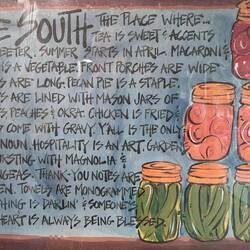 SOUTH THE PLACE WHERE...
TEA IS SWEET & ACCENTS
SUMMER STARTS IN APRIL. MACARONI &
IS A VEGETABLE. FRONT PORCHES ARE WIDE
ARE LONG. PECAN PIE IS A STAPLE.
ARE LINED WITH MASON JARS OF
PEACHES & OKRA. CHICKEN IS FRIED &
COME WITH GRAVY. Y'ALL IS THE ONLY
HOSPITALITY IS AN ART. GARDEN
WITH MAGNOLIA &
THANK-YOU NOTES ARE
TOWELS ARE MONOGRAMMED
IS DARLIN' & SOMEONE'S
HEART IS ALWAYS BEING BLESSED.